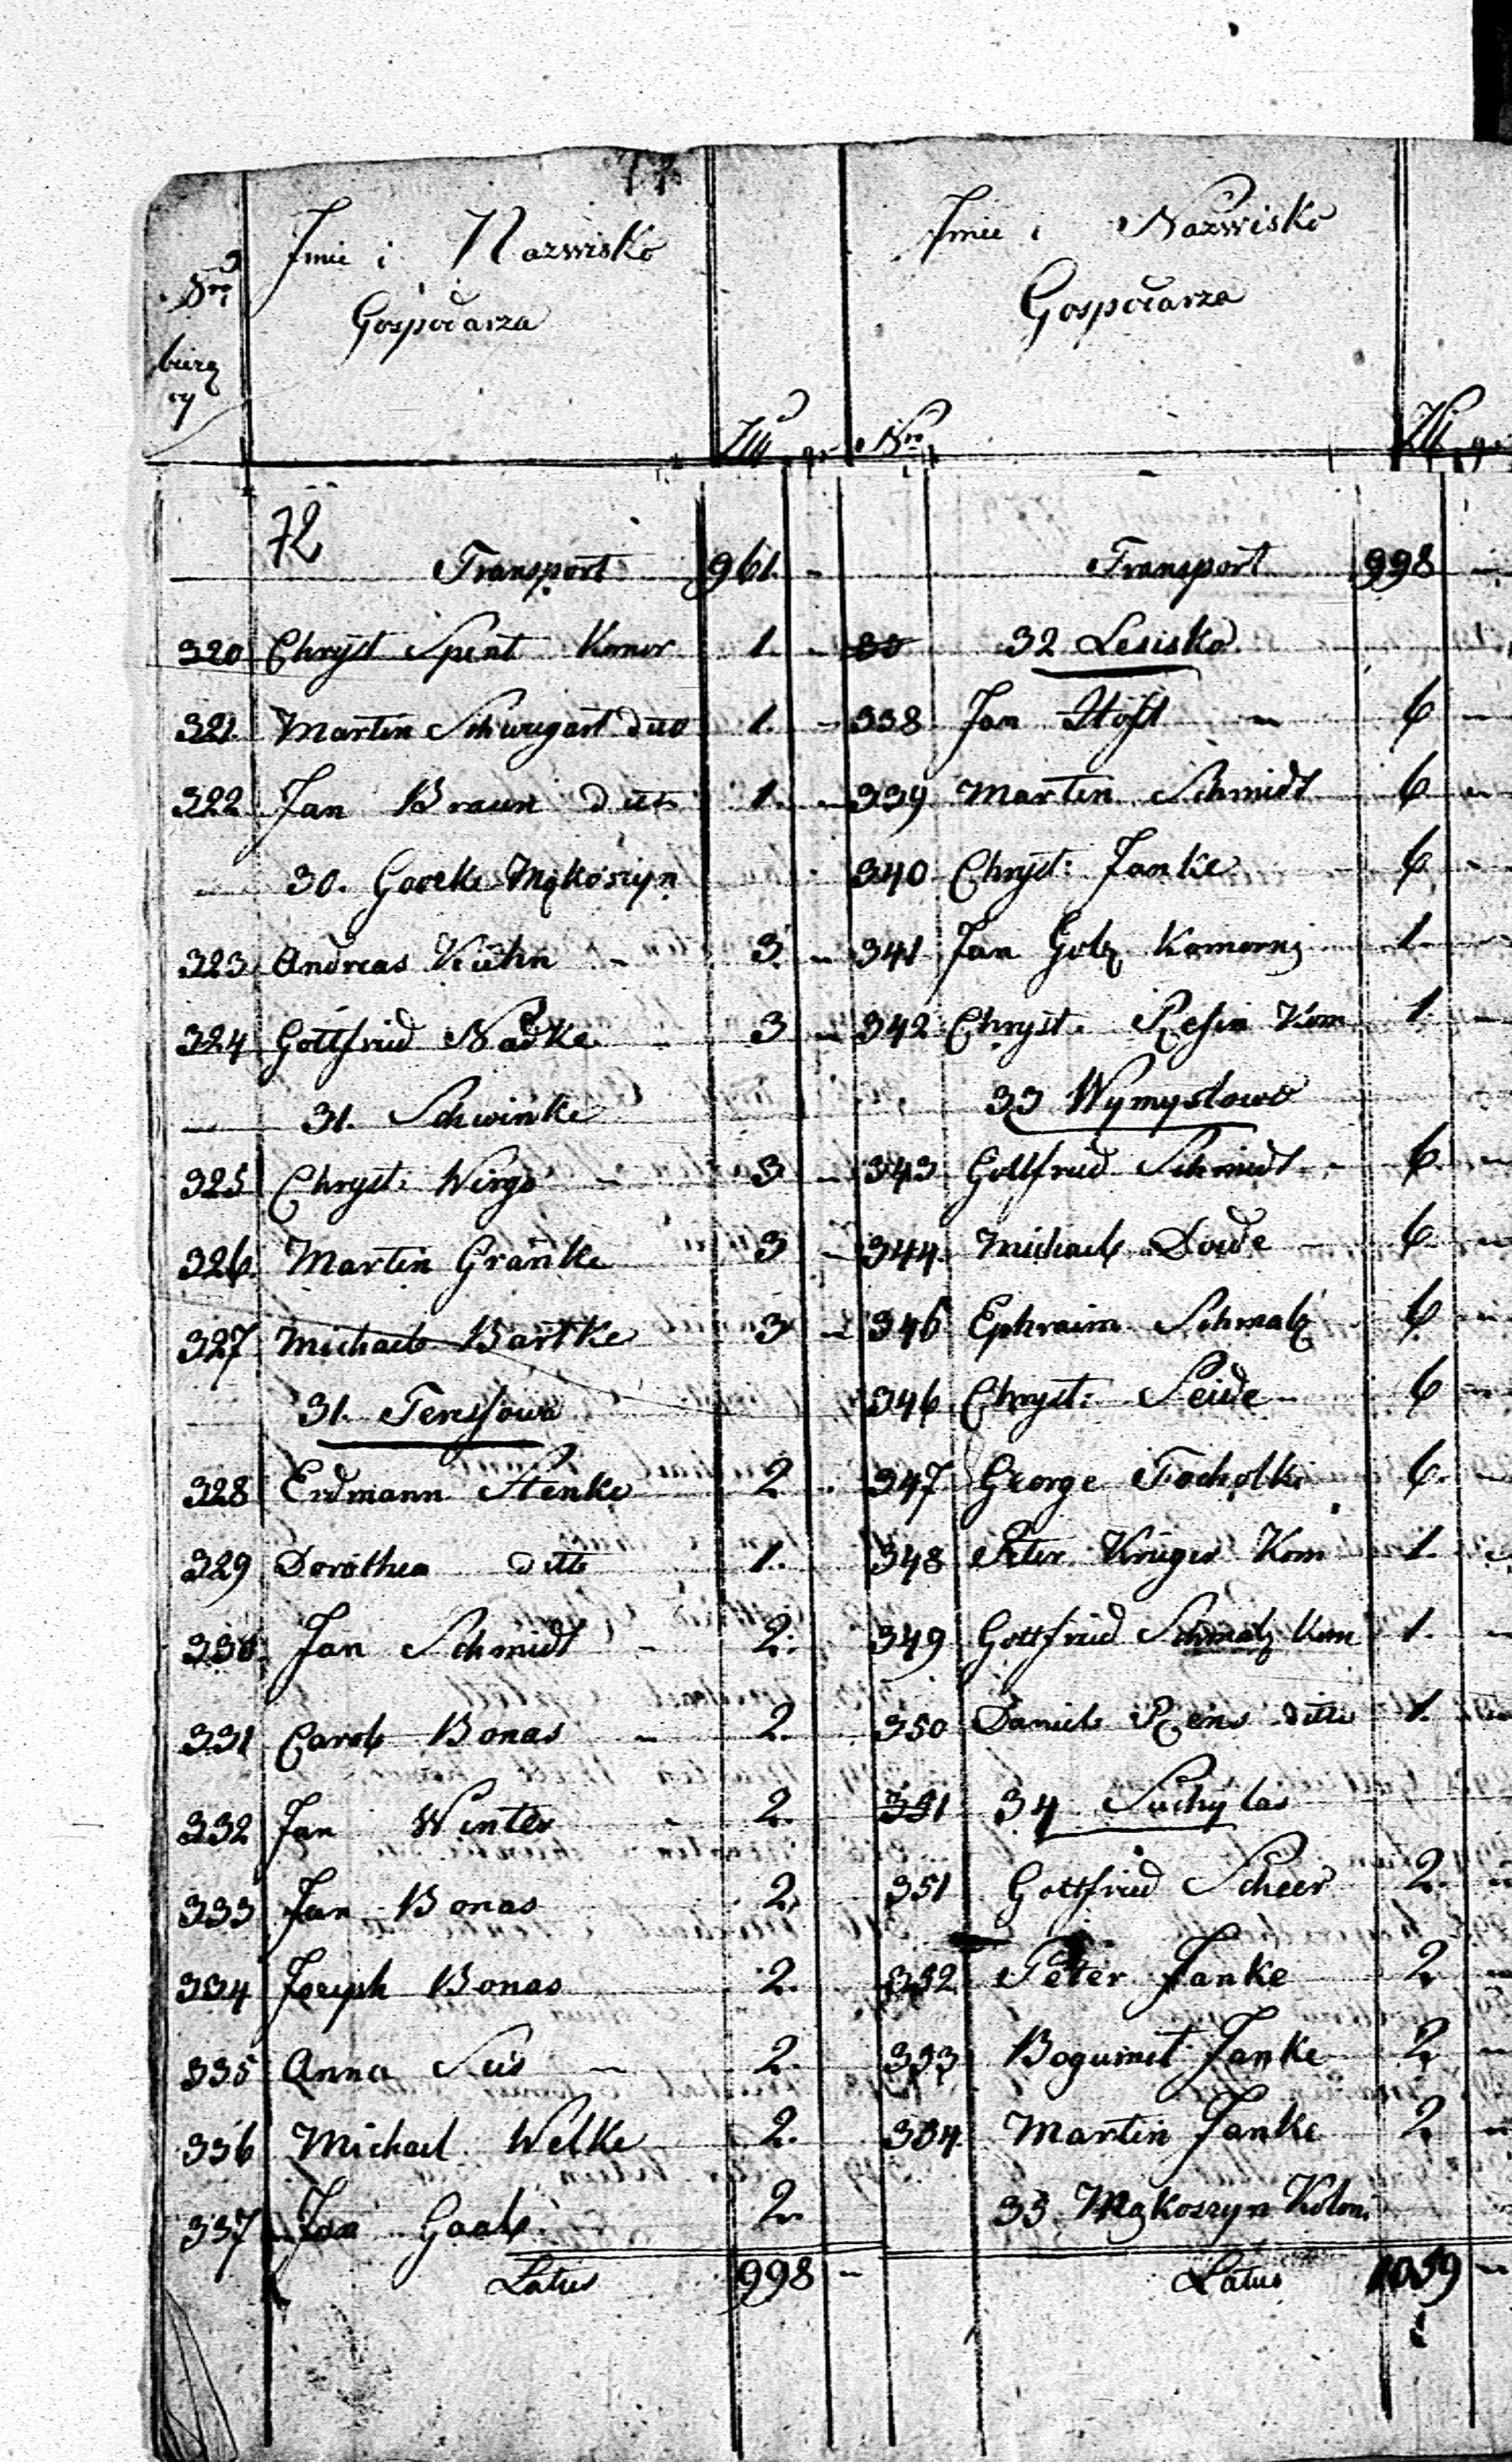 Nro
Imie i Nazwisko
Gospodarza
Złł gr
72
Transport 961 -
320 Chryst Spent Komor 1. -
321. Martin Schweigert ditto 1. -
322 Jan Braun ditto 1. -
30. Goreke Mąkoszyn
323 Andreas Kühn - 3. -
324 Gottfried Nadke - 3 -
31. Schwinke
325 Chryst: Wirgo - 3 -
326. Martin Granke 3 -
327 Michael Bartke 3 -
31. Teressowo
328 Erdmann Henke 2.
329 Dorothea ditto 1.
330 Jan Schmidt - 2.
331 Carol Bonas - 2.
332 Jan Winter - 2.
333 Jan Bonas 2.
334 Joseph Bonas 2.
335 Anna Süs - 2.
336 Michael Welke 2.
337 Jan Gaal 2.
Latus 998 -
Imie i Nazwisko
Gospodarza
Nro Złł gr
Transport 998 -
32 Lesisko
338 Jan Höft - 6 -
339 Martin Schmidt 6 -
340 Chryst: Janke 6 -
341 Jan Golz Komorn 1. -
342 Chryst. Kom 1. -
33 Wymysłowo
343 Gottfried Schmidt - 6. -
344. Michael Dode - 6. -
346 Ephraim Schmalz 6 -
346 Chryst: Seide - 6 -
347 George Tocholki 6. -
348 Peter Krüger Kom 1. -
349 Gottfried Schmalz Kom 1. -
350 Daniel Rens ditto 1. -
351 34 Suchylas
351 Gottfried Scheer 2. -
352 Peter Janke 2 -
353 Bogumił Janke 2 -
354. Martin Janke 2 -
35 Mąkoszyn Koloni
Latus 1039 -